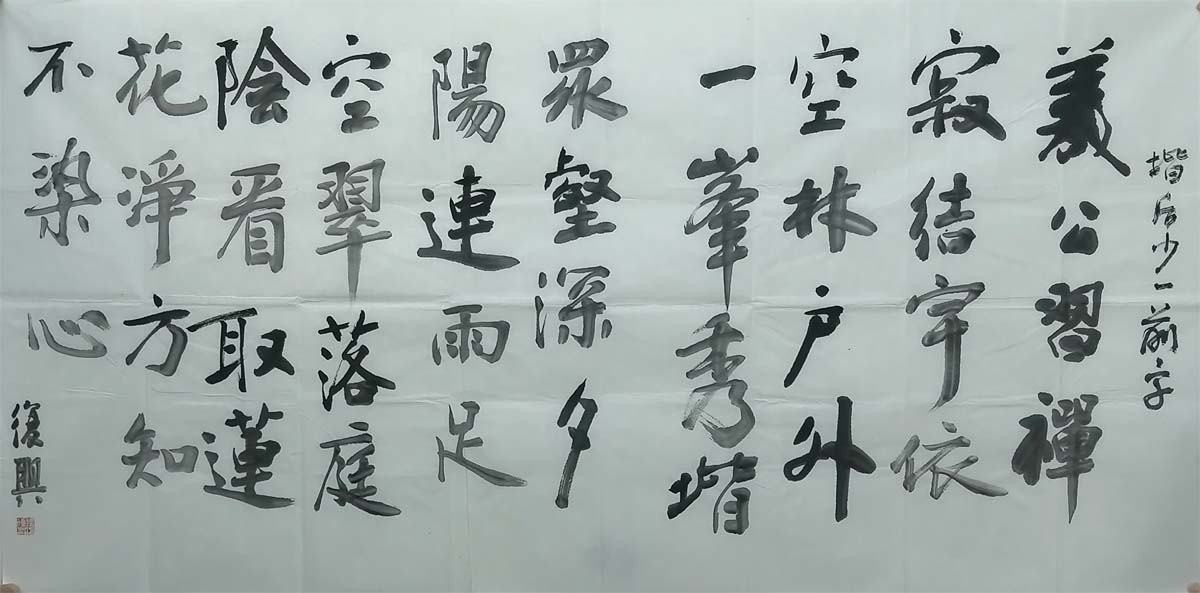 堦后少一前字
義公習禪
寂結宇依
空林户外
一峯秀堦
眾壑深夕
陽連雨足
空翠落庭
陰看取蓮
花淨方知
不染心
復興